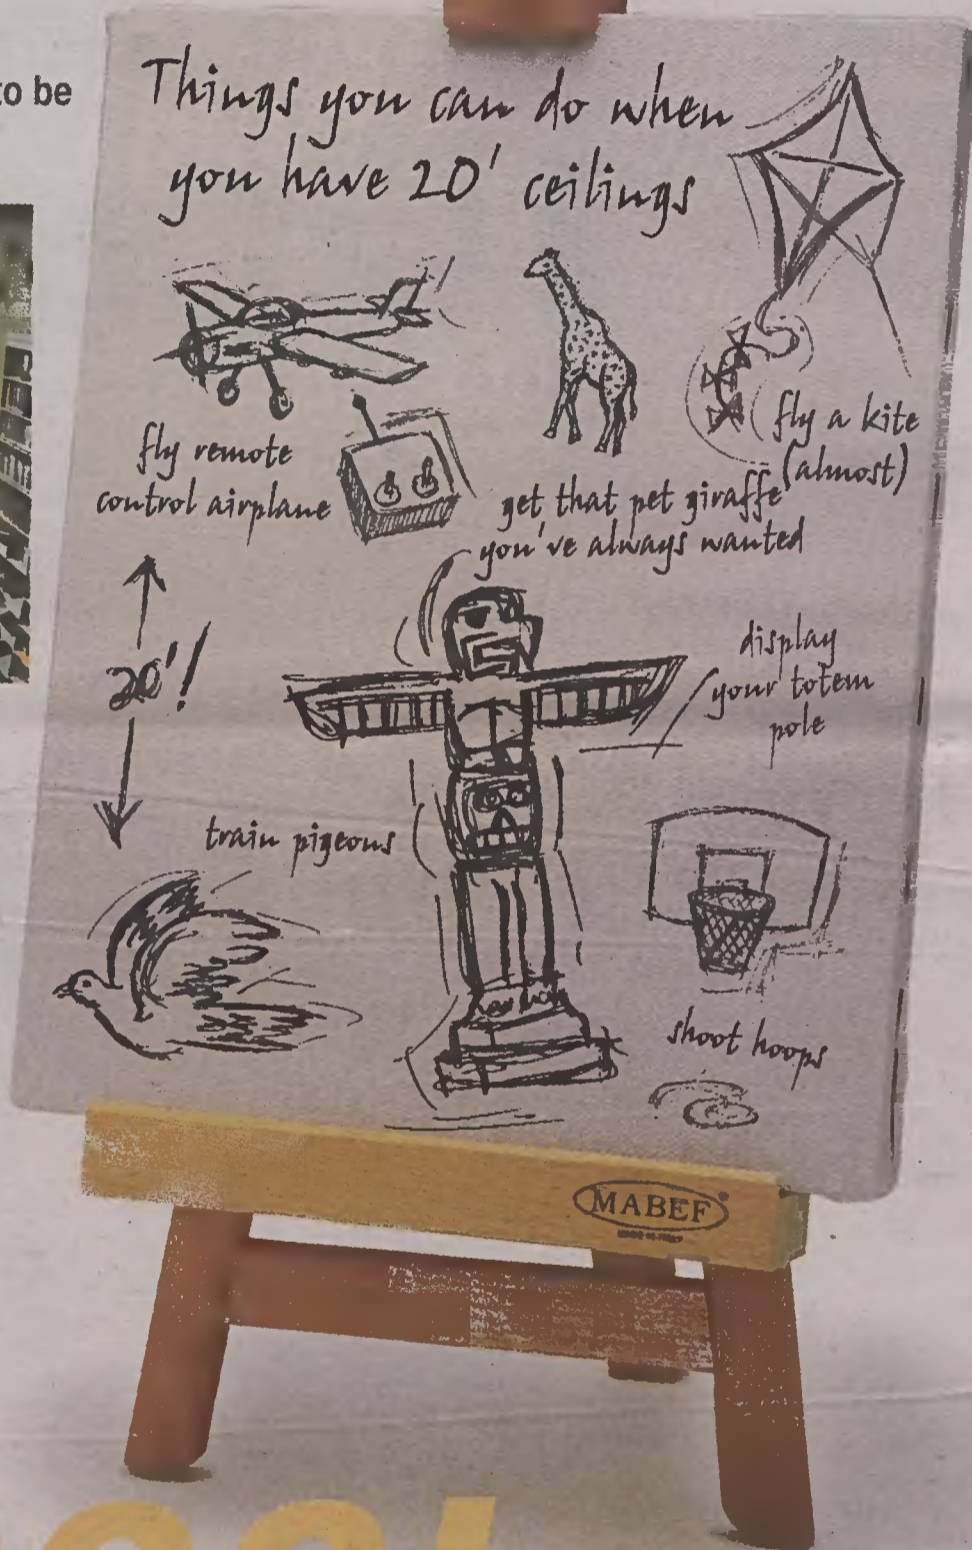 to be
Things you can do when
you have 20' ceilings
fly remote
control airplane
get that pet giraffe
you've always wanted
fly a kite
(almost)
20'!
display
your totem
pole
train pigeons
shoot hoops
MABEF
MADE IN ITALY